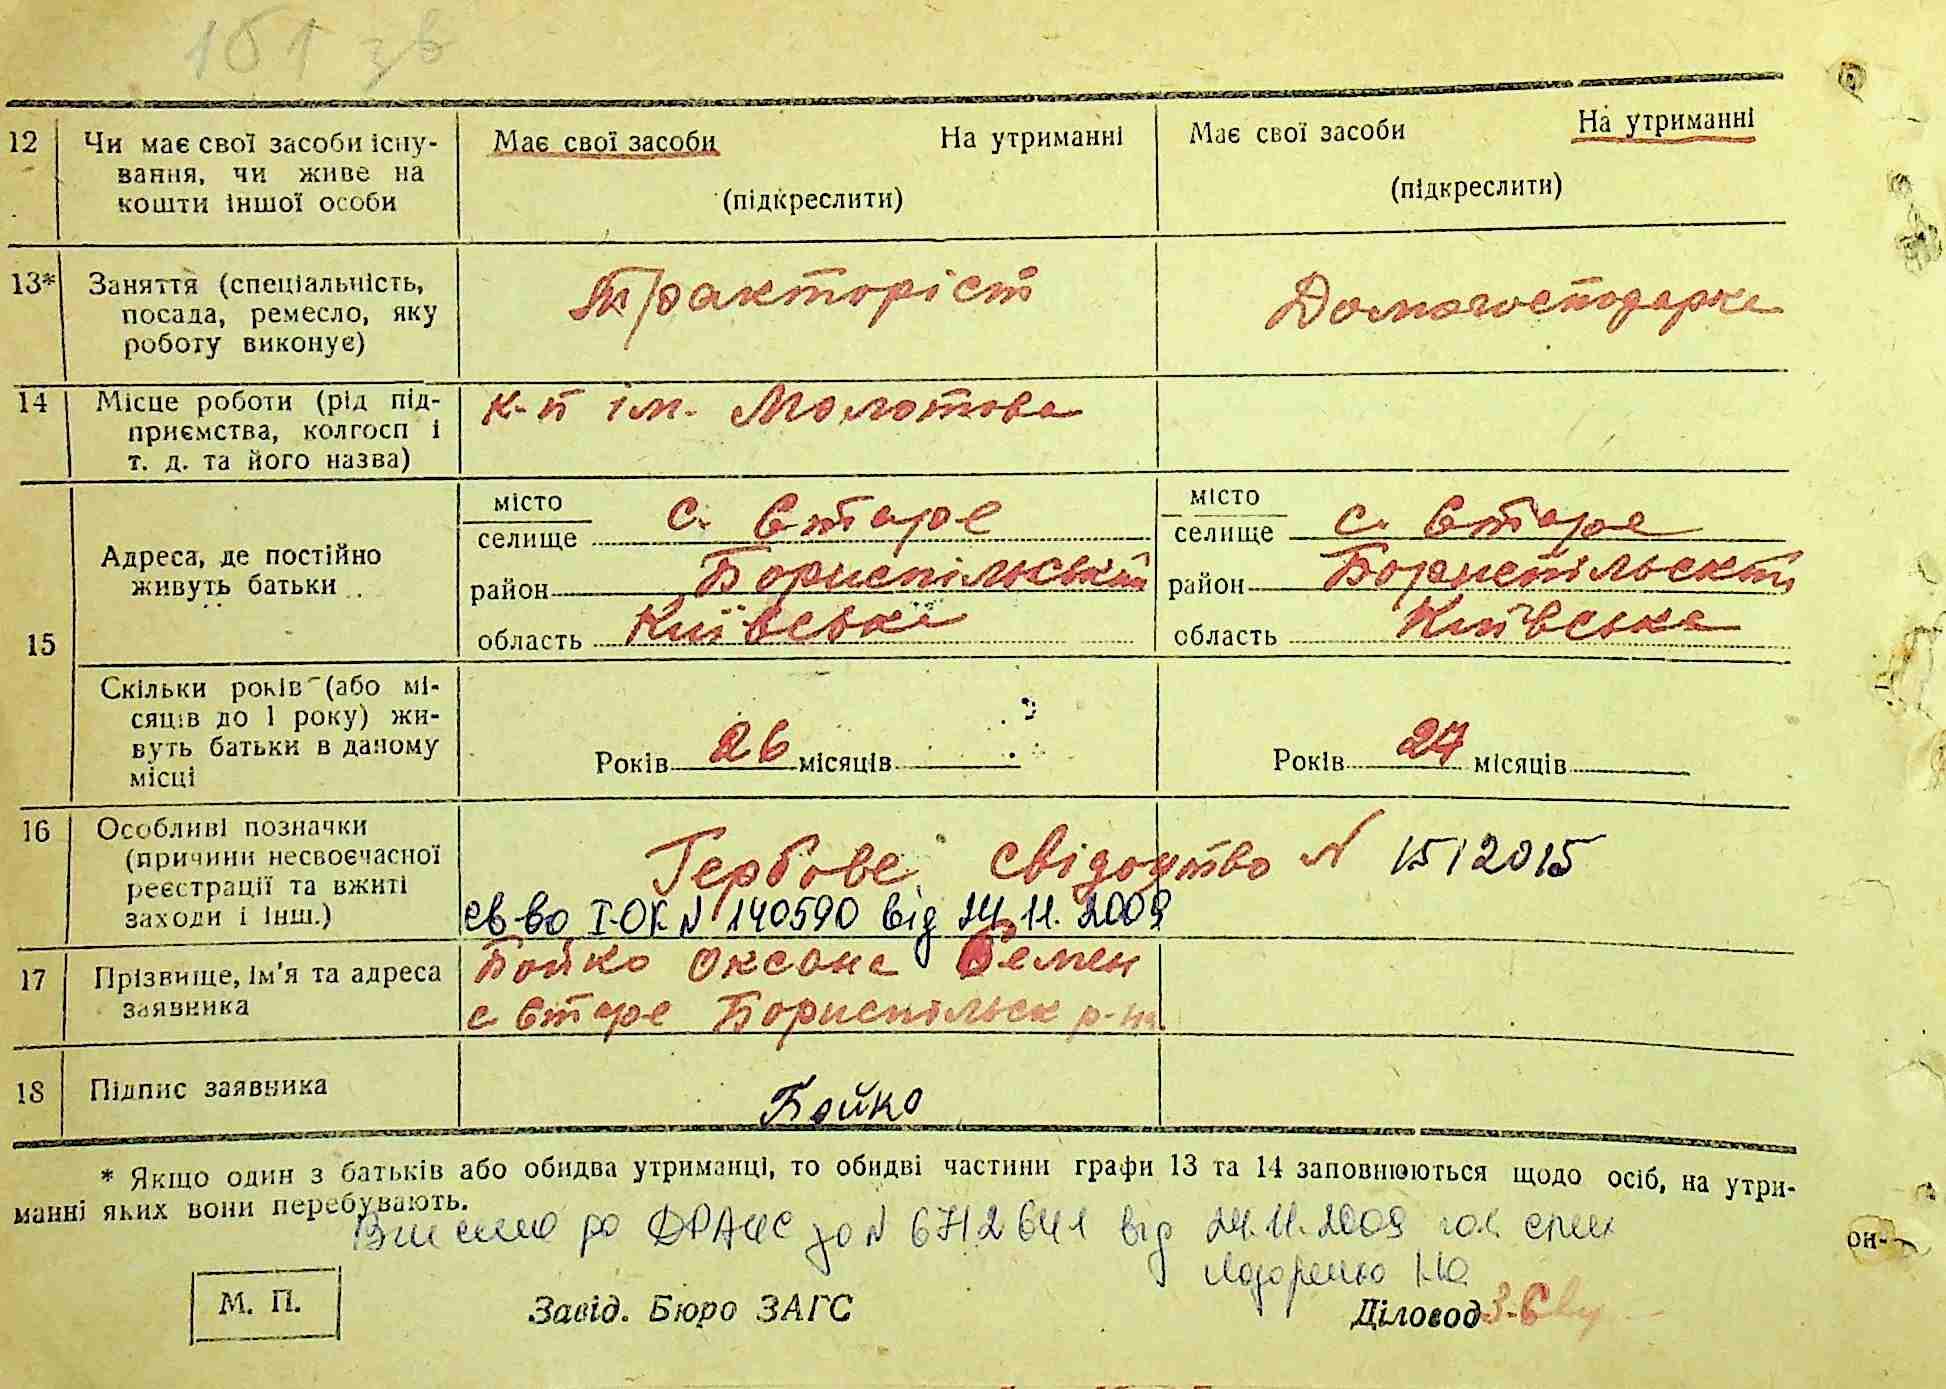 151 зв
12 Чи має свої засоби існу- Має свої засоби На утриманні Має свої засоби На утриманні
вання, чи живе на
кошти іншої особи (підкреслити) (підкреслити)
13* Заняття (спеціальність, Тракторіст Домогосподарка
посада, ремесло, яку
роботу виконує)
14 Місце роботи (рід під- к-п ім. Молотова
приємства, колгосп і
т. д. та його назва)
15 Адреса, де постійно
живуть батьки
місто с. Старе місто с. Старе
селище селище
район Бориспільський район Бориспільскій
область Київська область Київська
Скільки років (або мі-
сяців до 1 року) жи-
вуть батьки в даному Років 26 місяців Років 24 місяців
місці
16 Особливі позначки Гербове свідоцтво N 1512015
(причини несвоєчасної
реєстрації та вжиті
заходи і інш.) св-во І-ОК N 140590 від 24.11.2009
17 Прізвище, ім'я та адреса Бойко Оксана Семен
заявника с Старе Бориспільск р-на
18 Підпис заявника Бойко
* Якщо один з батьків або обидва утриманці, то обидві частини графи 13 та 14 заповнюються щодо осіб, на утри-
манні яких вони перебувають.
Внесено до ДРАЦС за N 6712641 від 24.11.2009 гол. спец
М. П. Завід. Бюро ЗАГС Діловод
он-